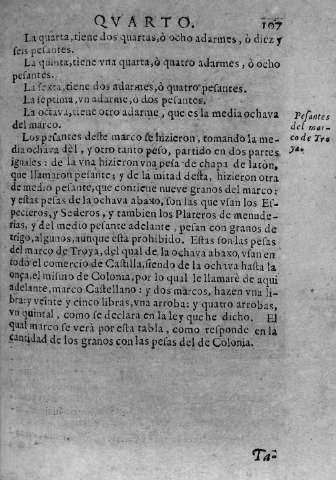 QVARTO. 107
La quarta, tiene dos quartas, ò ocho adarmes, ò diez y
seis pesantes.
La quinta, tiene vna quarta, ò quatro adarmes, ò ocho
pesantes.
La sexta, tiene dos adarmes, ò quatro pesantes.
La septima, vn adarme, ò dos pesantes.
La octava, tiene otro adarme, que es la media ochava
del marco.
Los pesantes deste marco se hizieron, tomando la me-
dia ochava dèl, y otro tanto peso, partido en dos partes
iguales: de la vna hizieron vna pesa de chapa de laton,
que llamaron pesante; y de la mitad desta, hizieron otra
de medio pesante, que contiene nueve granos del marco:
y estas pesas de la ochava abaxo, son las que vsan los Es-
pecieros, y Sederos, y tambien los Plateros de menude-
rias, y del medio pesante adelante, pesan con granos de
trigo, algunos, aunque esta prohibido. Estas son las pesas
del marco de Troya, del qual de la ochava abaxo, vsan en
todo el comercio de Castilla, siendo de la ochava hasta la
onça, el mismo de Colonia, por lo qual le llamarè de aqui
adelante, marco Castellano: y dos marcos, hazen vna li-
bra: y veinte y cinco libras, vna arroba: y quatro arrobas,
vn quintal, como se declara en la ley que he dicho. El
qual marco se verà por esta tabla, como responde en la
cantidad de los granos con las pesas del de Colonia.
Pesantes
del mar-
co de Tro
ya.
Ta-